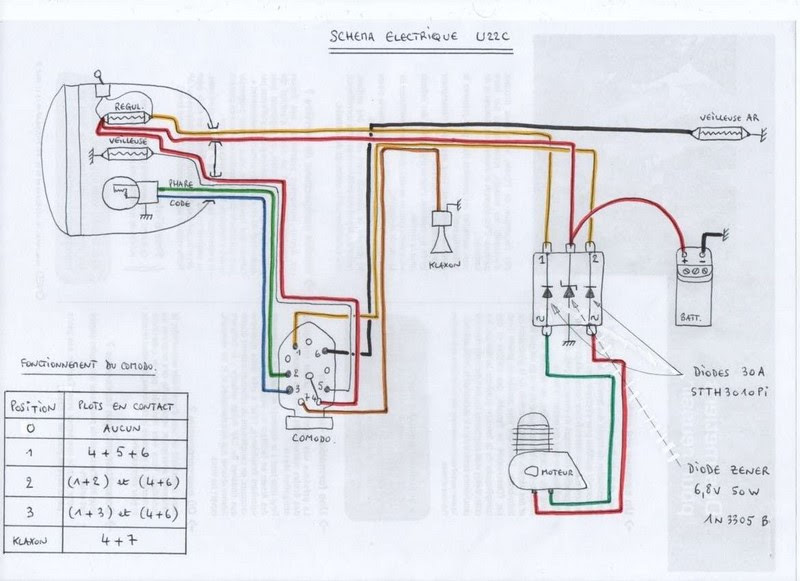 SCHEMA ELECTRIQUE U22C
REGUL.
VEILLEUSE
PHARE
CODE
VEILLEUSE AR
KLAXON
1 2
+ -
BATT.
~ ~
1
6
2
3
5
7 4
COMODO.
DIODES 30A
STTH3010Pi
MOTEUR
DIODE ZENER
6,8V 50W
1N3305 B
FONCTIONNEMENT DU COMODO.
POSITION PLOTS EN CONTACT
0 AUCUN
1 4 + 5 + 6
2 (1+2) et (4+6)
3 (1+3) et (4+6)
KLAXON 4 + 7